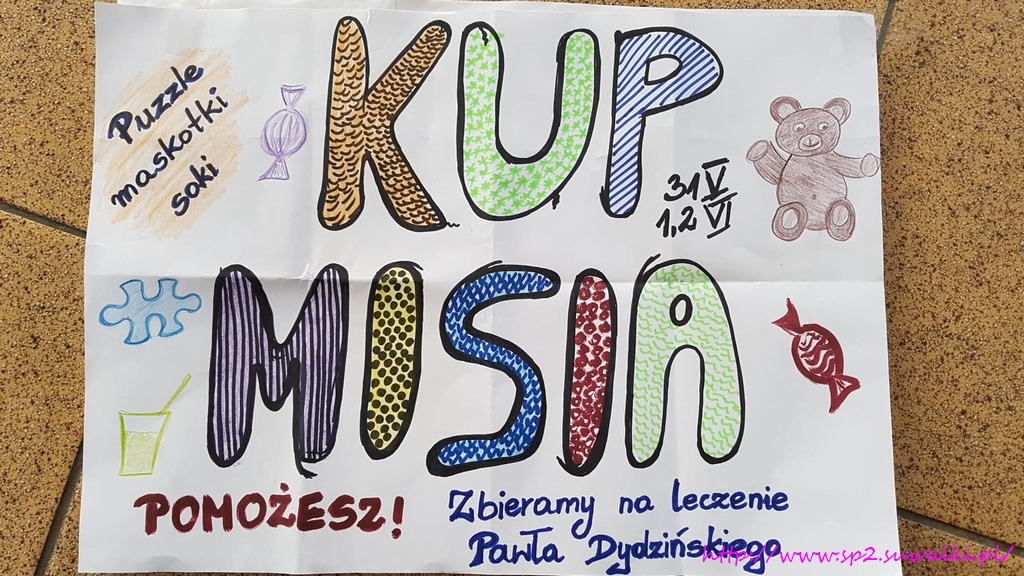 Puzzle
maskotki
soki
KUP
31 V
1,2 VI
MISIA
POMOŻESZ!
Zbieramy na leczenie
Pawła Dydzińskiego
http://www.sp2.suwalki.pl/